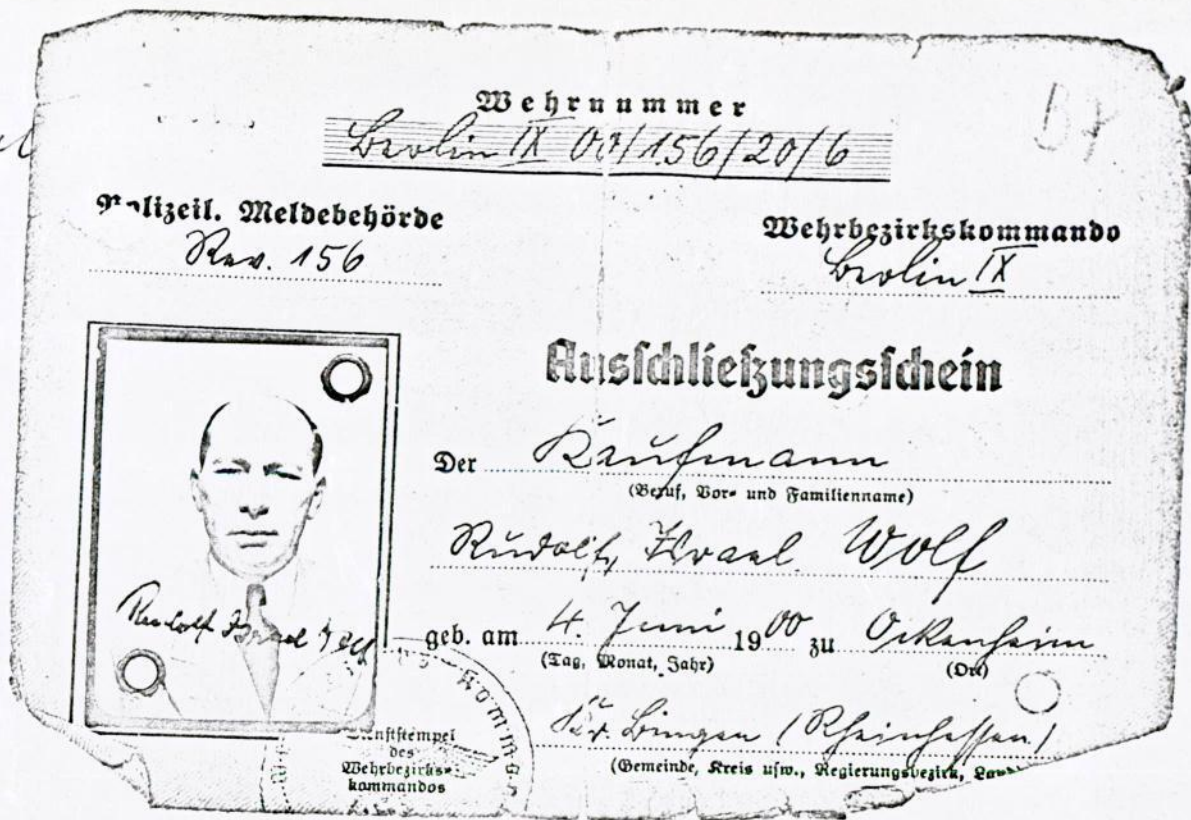 Wehrnummer
Berlin IX 00/156/20/6
D7
Polizeil. Meldebehörde
Rev. 156
Wehrbezirkskommando
Berlin IX
Ausschließungsschein
Der Kaufmann
(Beruf, Vor- und Familienname)
Rudolf Israel Wolf
geb. am 4. Juni 1900 zu Ockenheim
(Tag, Monat, Jahr) (Ort)
Kr. Bingen (Rheinhessen)
(Gemeinde, Kreis usw., Regierungsbezirk, Land)
Rudolf Israel Wolf
Dienststempel
des
Wehrbezirks-
kommandos